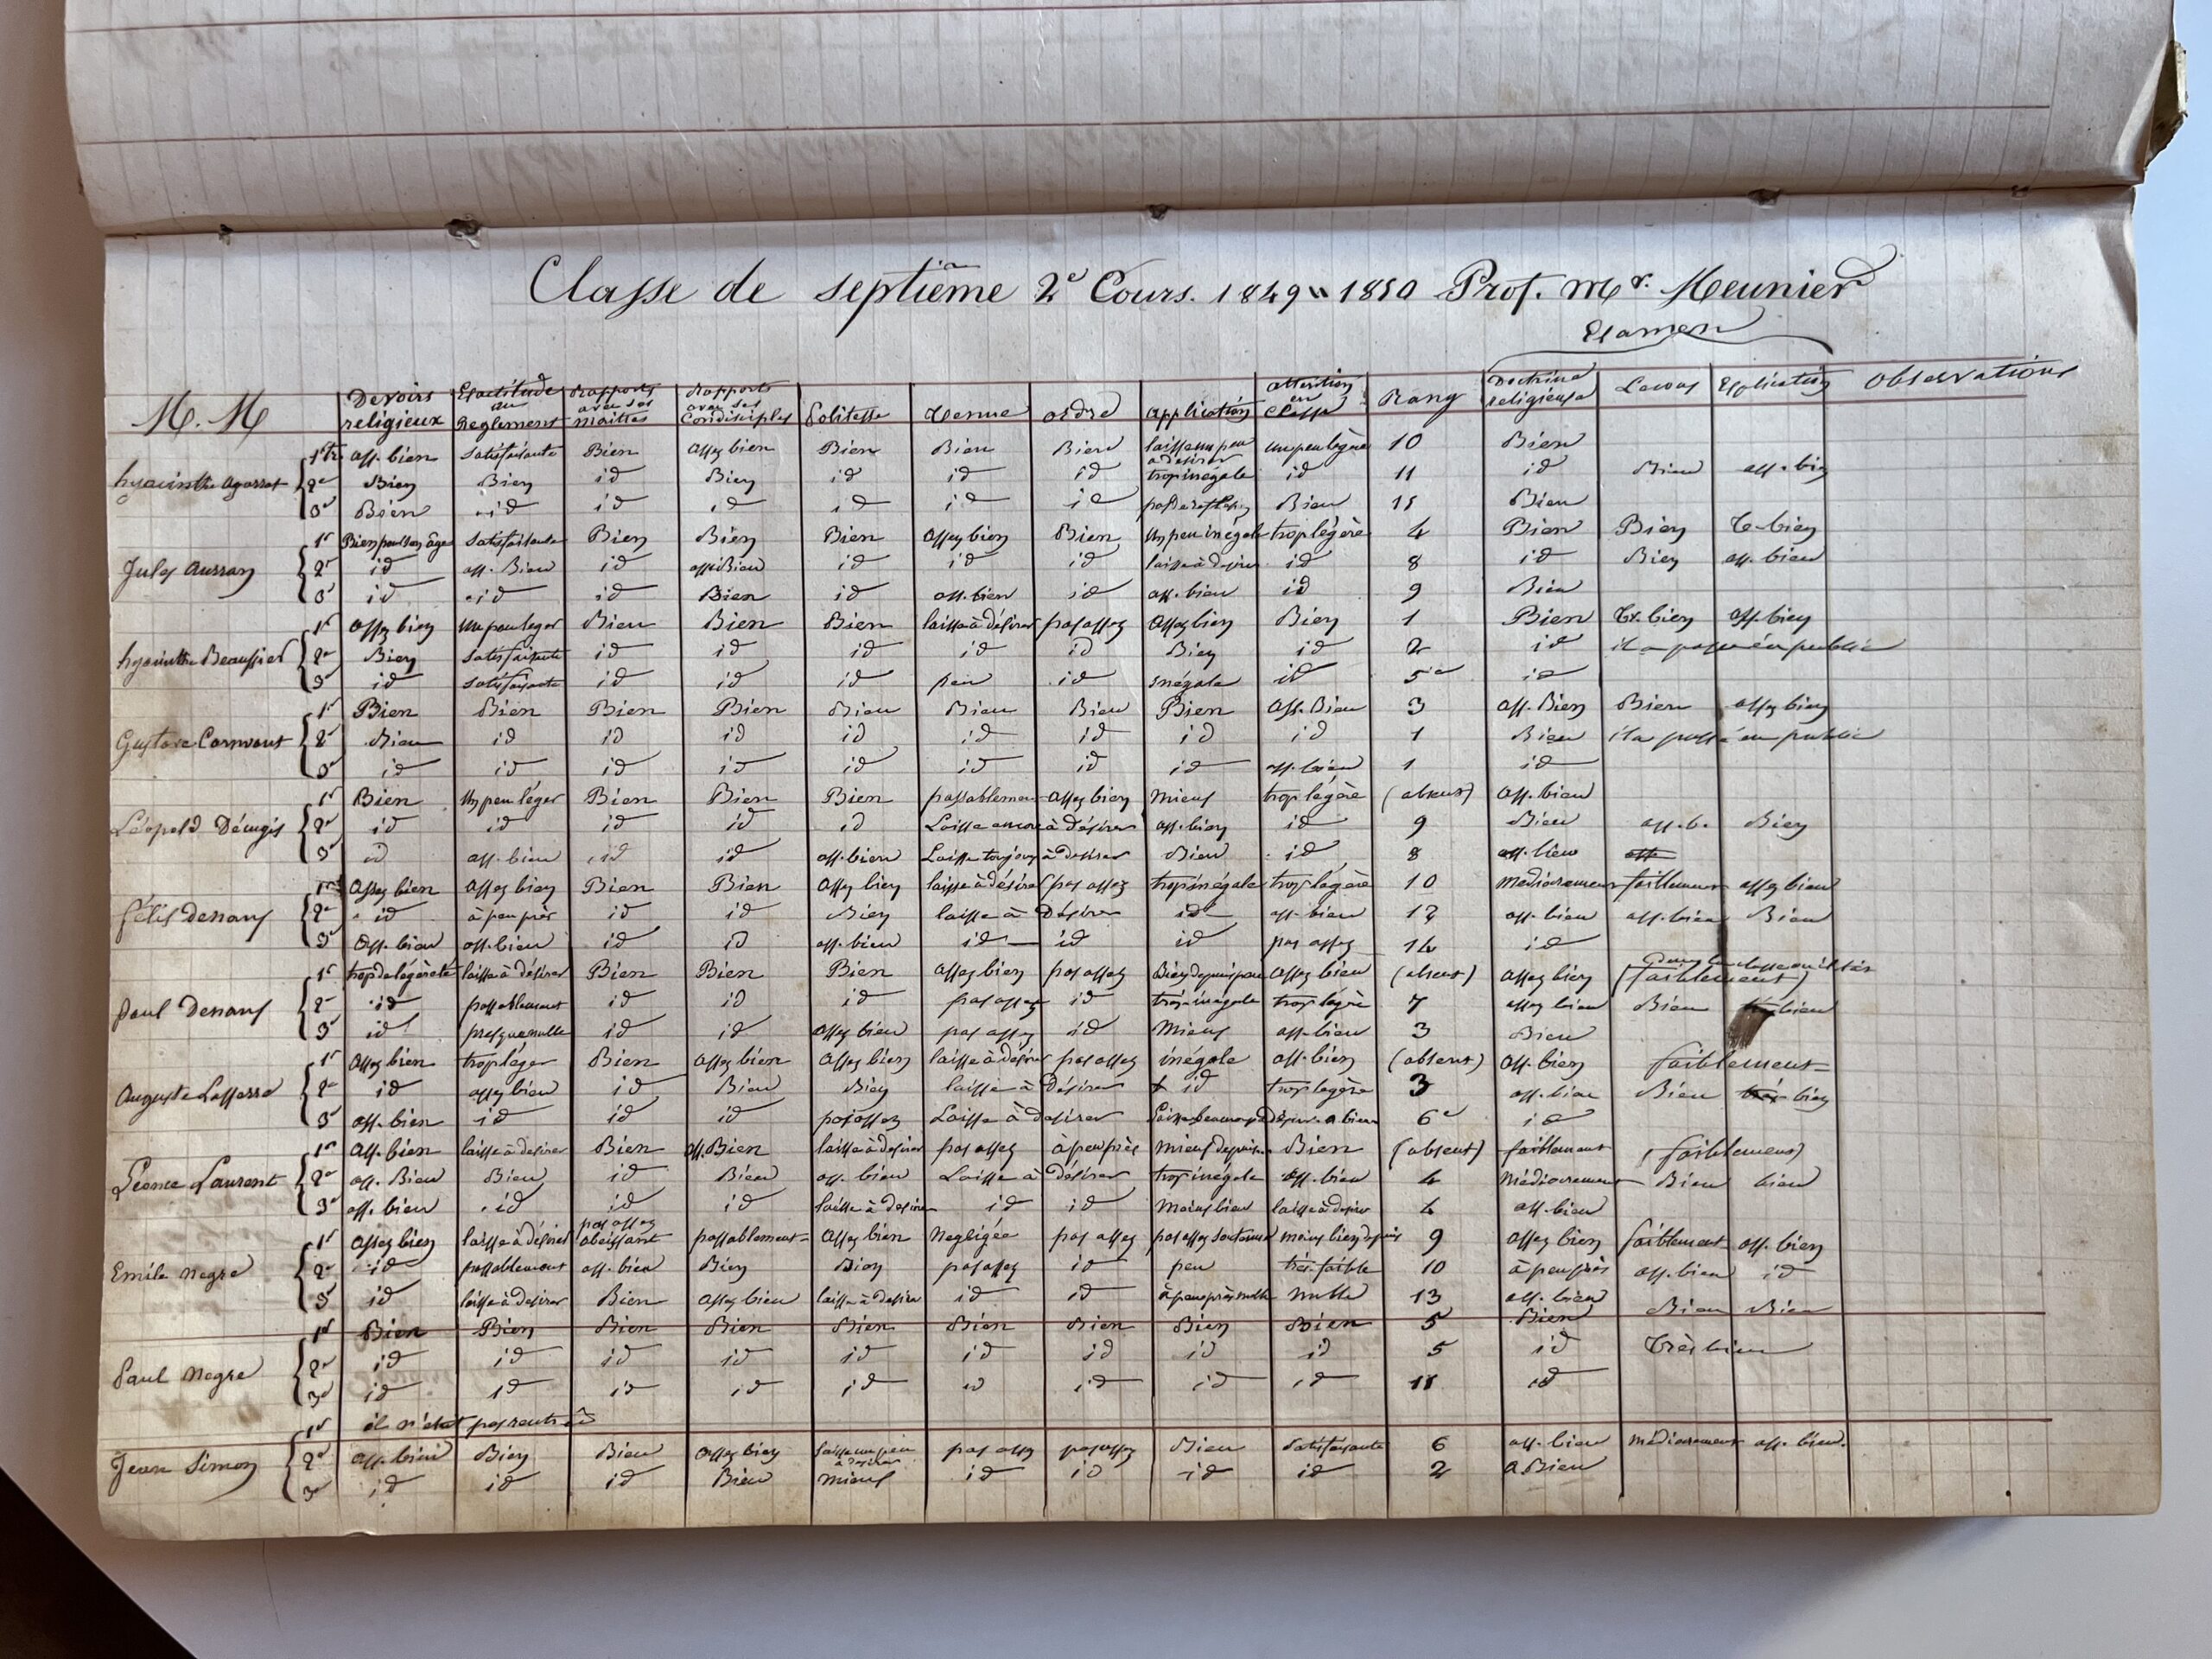 Classe de septième 2e Cours. 1849 " 1850 Prof. Mr. Meunier
Examen
M. M Devoirs religieux Exactitude au Reglement Rapports avec ses maitres Rapports avec ses Condisciples Politesse Tenue ordre Application attention en Classe Rang Doctrine religieuse Leçons Explication Observations
hyacinthe Agarrat 1er tr. ass. bien satisfaisante Bien assez bien Bien Bien Bien laisse un peu à desirer un peu légère 10 Bien
2e Bien Bien id Bien id id id trop inégale id 11 id Bien ass. bien
3e Bien id id id id id id Bien 11 Bien
Jules Aurran 1er Bien pour son âge satisfaisante Bien Bien Bien assez bien Bien un peu inégale trop légère 4 Bien Bien T. bien
2e id ass. Bien id assez Bien id id id laisse à desirer id 8 id Bien ass. bien
3e id id id Bien id ass. bien id ass. bien id 9 Bien
hyacinthe Beaussier 1er assez bien un peu leger Bien Bien Bien laisse à désirer pas assez Assez bien Bien 1 Bien Tr. bien ass. bien
2e Bien satisfaisante id id id id id Bien id 2 id il a passé en public
3e id satisfaisante id id id peu id inégale id 5e id
Gustave Cornvout 1er Bien Bien Bien Bien Bien Bien Bien Bien ass. Bien 3 ass. Bien Bien assez bien
2e Bien id id id id id id id id 1 Bien il a passé en public
3e id id id id id id id id ass. bien 1 id
Léopold Décugis 1er Bien un peu léger Bien Bien Bien passablement assez bien mieux trop légère (absent) ass. bien
2e id id id id id Laisse encore à désirer ass. bien id 9 Bien ass. b. Bien
3e id ass. bien id id ass. bien Laisse toujours à desirer Bien id 8 ass. bien
félix Denans 1er assez bien assez bien Bien Bien assez bien laisse à désirer pas assez trop inégale trop légère 10 médiocrement faiblement assez bien
2e id à peu près id id Bien laisse à désirer id ass. bien 12 ass. bien ass. bien Bien
3e ass. bien ass. bien id id ass. bien id id id pas assez 14 id
Paul Denans 1er trop de légèreté laisse à désirer Bien Bien Bien assez bien pas assez Bien depuis peu assez bien (absent) assez bien (faiblement)
2e id passablement id id id pas assez id très-inégale trop légère 7 assez bien Bien bien
3e id presque nulle id id assez bien pas assez id mieux ass. bien 3 Bien
Auguste Lasserre 1er assez bien trop léger Bien assez bien assez bien laisse à désirer pas assez inégale ass. bien (absent) ass. bien faiblement
2e id assez bien id Bien Bien laisse à désirer id trop légère 3 ass. bien Bien très bien
3e ass. bien id id id pas assez Laisse à desirer Laisse beaucoup à désirer a. bien 6e id
Léonce Laurent 1er ass. bien laisse à desirer Bien ass. Bien laisse à desirer pas assez à peu près mieux depuis Bien (absent) faiblement (faiblement)
2e ass. Bien Bien id Bien ass. bien Laisse à désirer trop inégale ass. bien 4 médiocrement Bien bien
3e ass. bien id id id laisse à desirer id id moins bien laisse à desirer 4 ass. bien
Emile Negre 1er assez bien laisse à désirer pas assez obeissant passablement assez bien Negligée pas assez pas assez soutenue moins bien depuis 9 assez bien faiblement ass. bien
2e id passablement ass. bien Bien Bien pas assez id peu très-faible 10 à peu près ass. bien id
3e id laisse à desirer Bien assez bien laisse à desirer id id à peu près nulle nulle 13 ass. bien
Paul Negre 1er Bien Bien Bien Bien Bien Bien Bien Bien Bien 5 Bien Bien Bien
2e id id id id id id id id id 5 id Très bien
3e id id id id id id id id id 11 id
Jean Simon 1er il n'était pas rentré
2e ass. bien Bien Bien assez bien laisse un peu à desirer pas assez pas assez Bien satisfaisante 6 ass. bien médiocrement ass. bien.
3e id id id Bien mieux id id id id 2 a. Bien